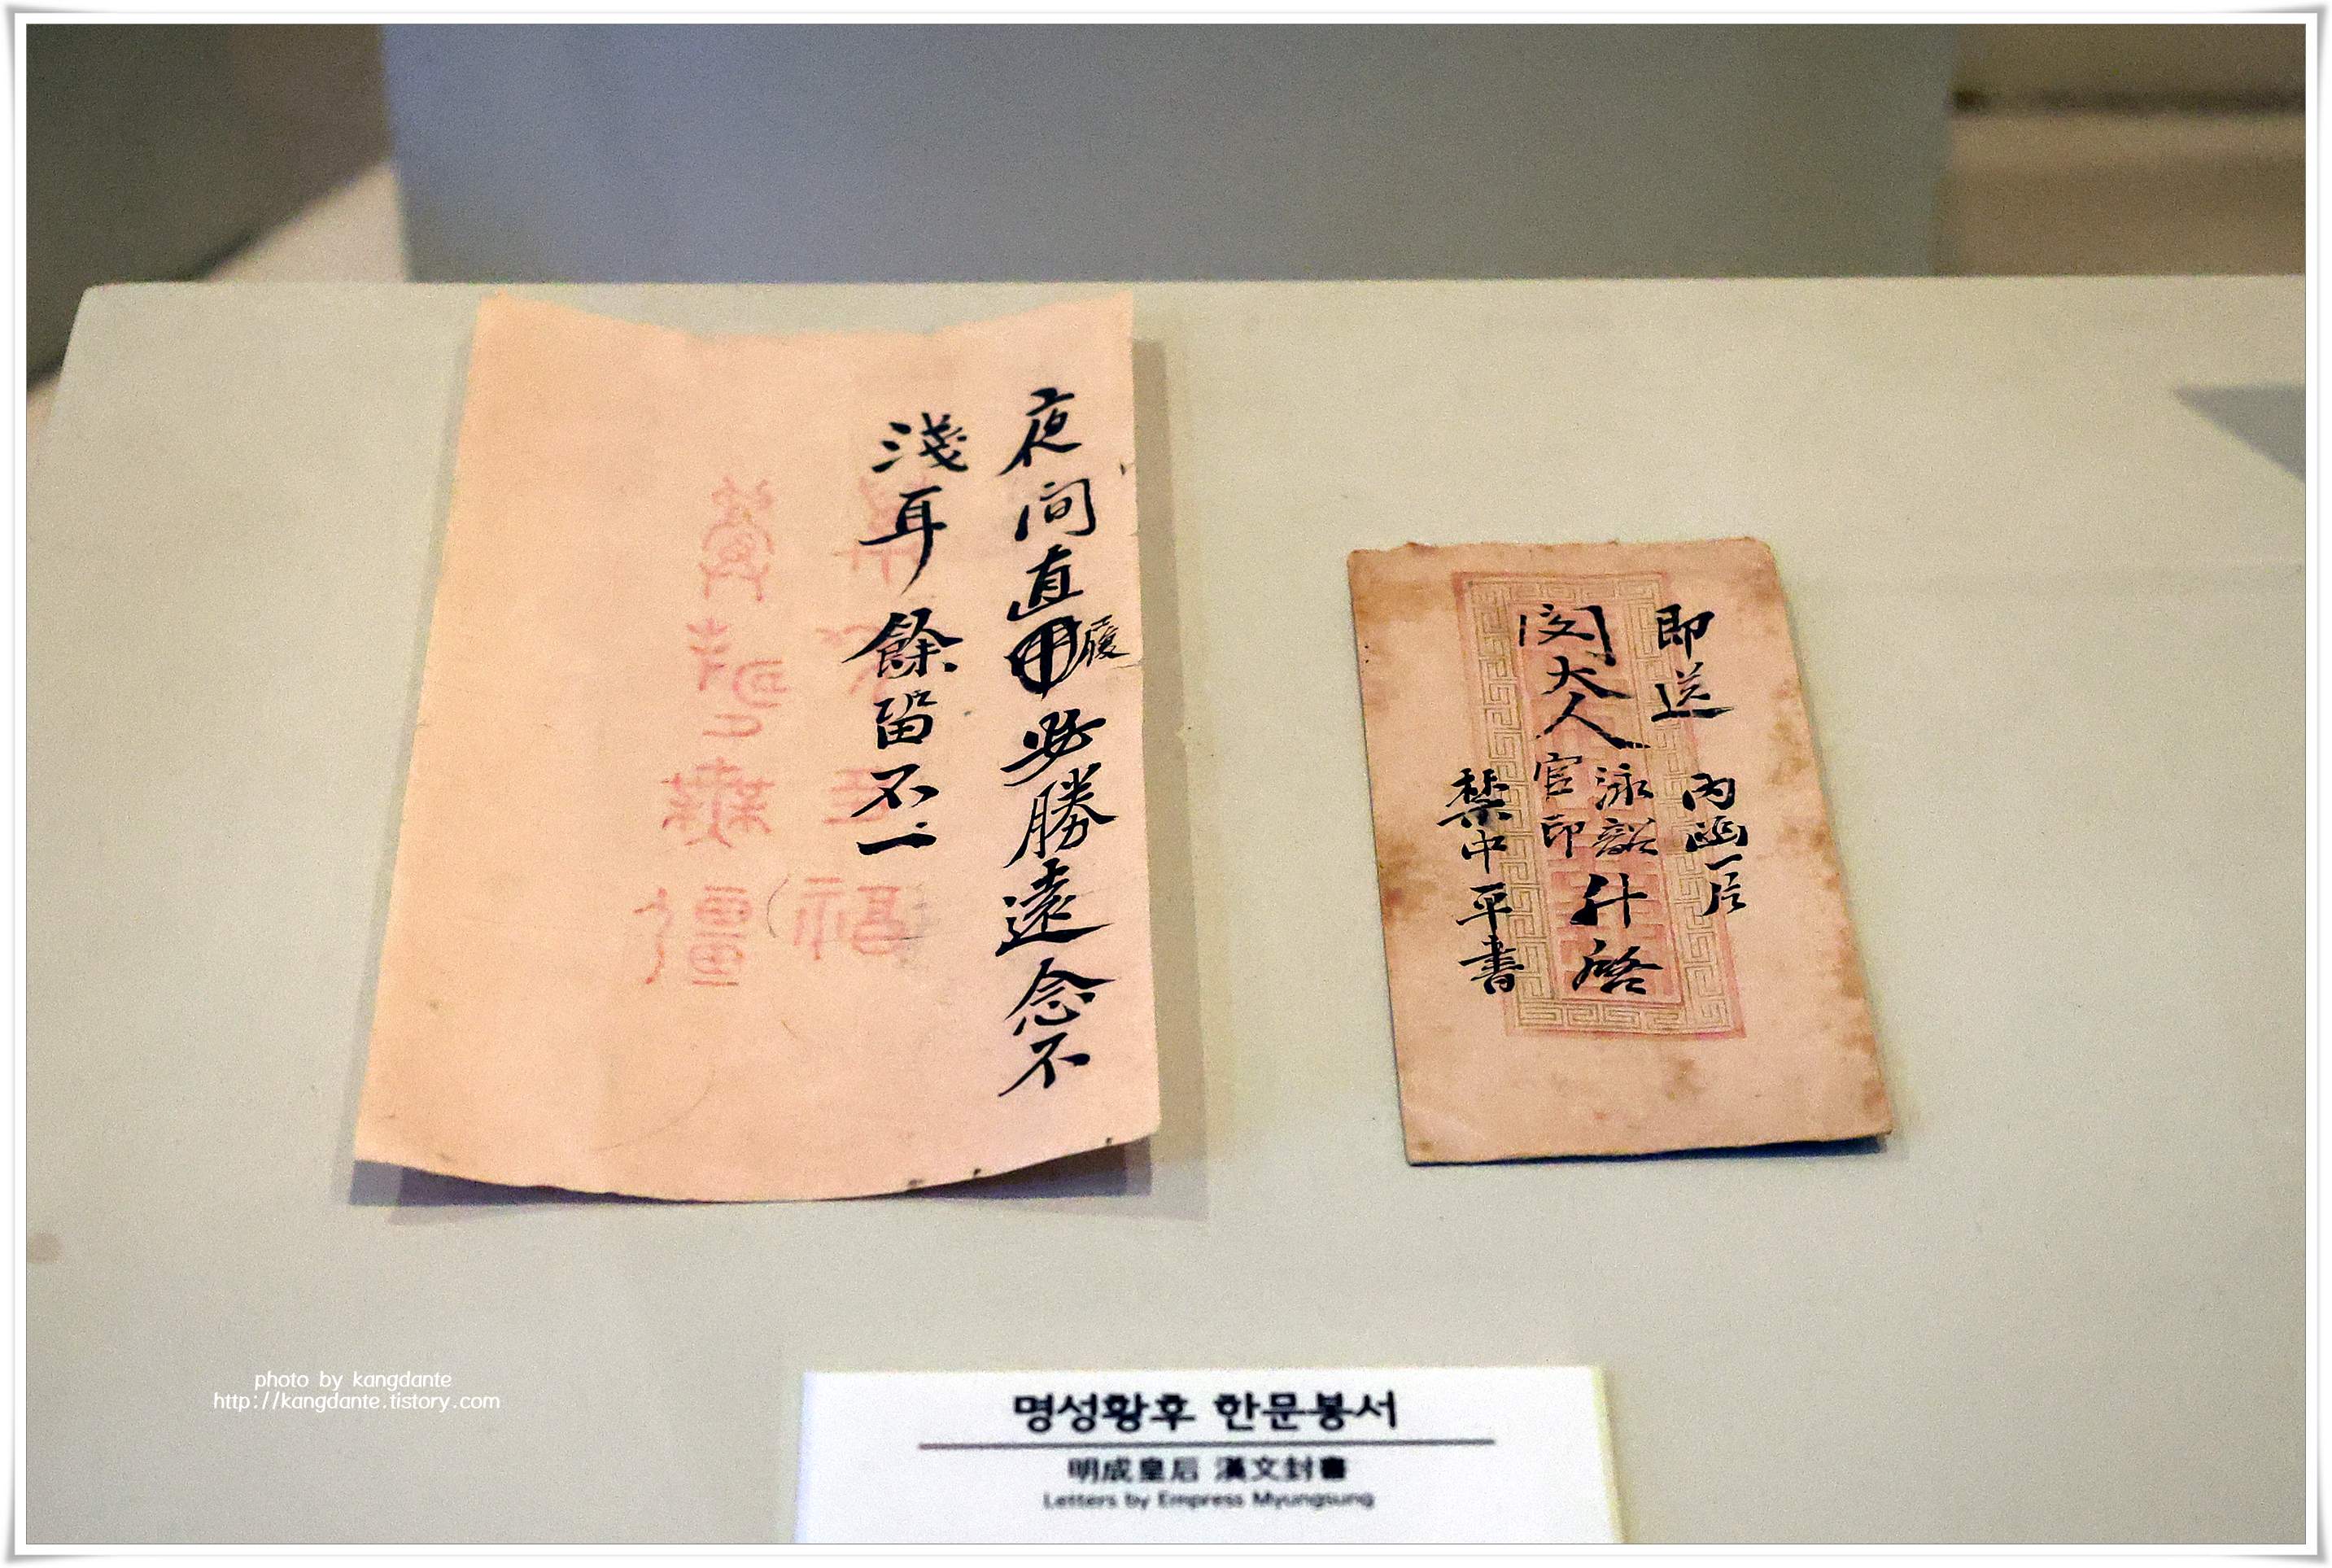 夜间直中履必勝遠念不
淺耳餘留不一
萬壽無疆
即送 內函一店
閔大人官印泳韶升啓
禁中平書
명성황후 한문봉서
明成皇后 漢文封書
Letters by Empress Myungsung
photo by kangdante
http://kangdante.tistory.com